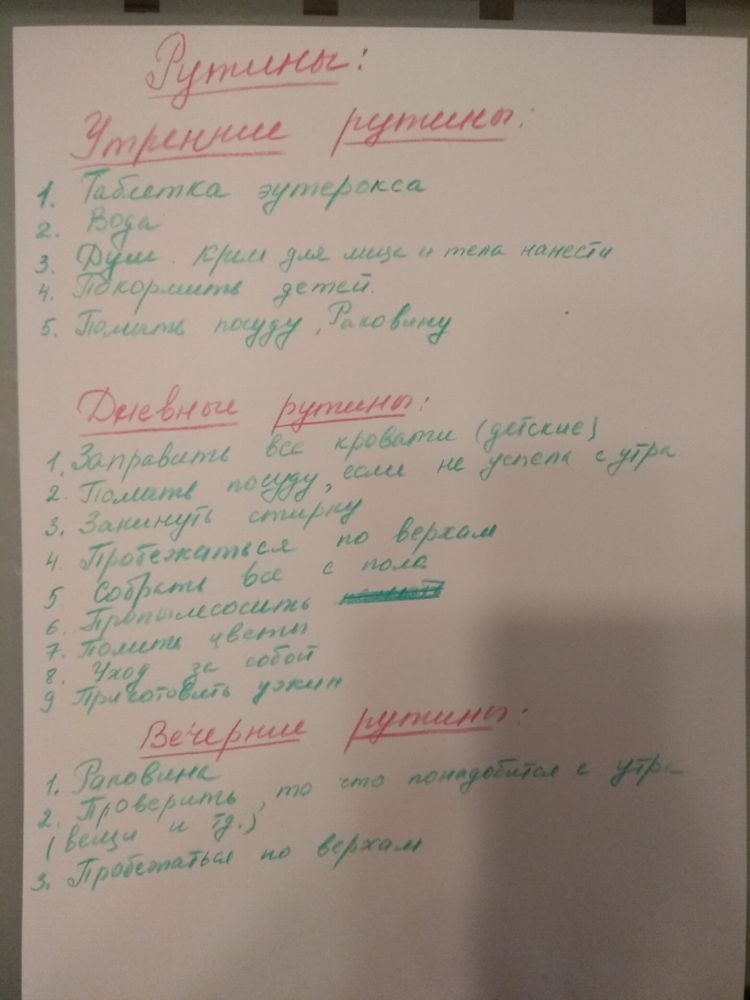 Рутины:
Утренние рутины:
1. Таблетка эутерокса
2. Вода
3. Душ. Крем для лица и тела нанести
4. Покормить детей.
5. Помыть посуду, Раковину
Дневные рутины:
1. Заправить все кровати (детские)
2. Помыть посуду, если не успела с утра
3. Закинуть стирку
4. Пробежаться по верхам
5 Собрать все с пола
6. Пропылесосить
7. Полить цветы
8. Уход за собой
9 Приготовить ужин
Вечерние рутины:
1. Раковина
2. Проверить, то что понадобится с утра
(вещи и тд.)
3. Пробежаться по верхам